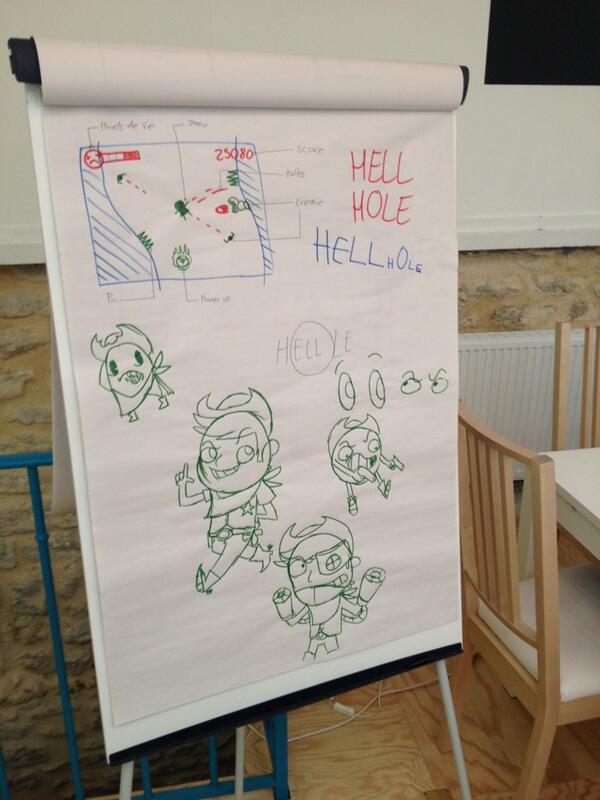 Points de vie
Joueur
25080
Score
Balles
Ennemie
Pic
Power up
HELL
HOLE
HELLHOLE
HELLLE